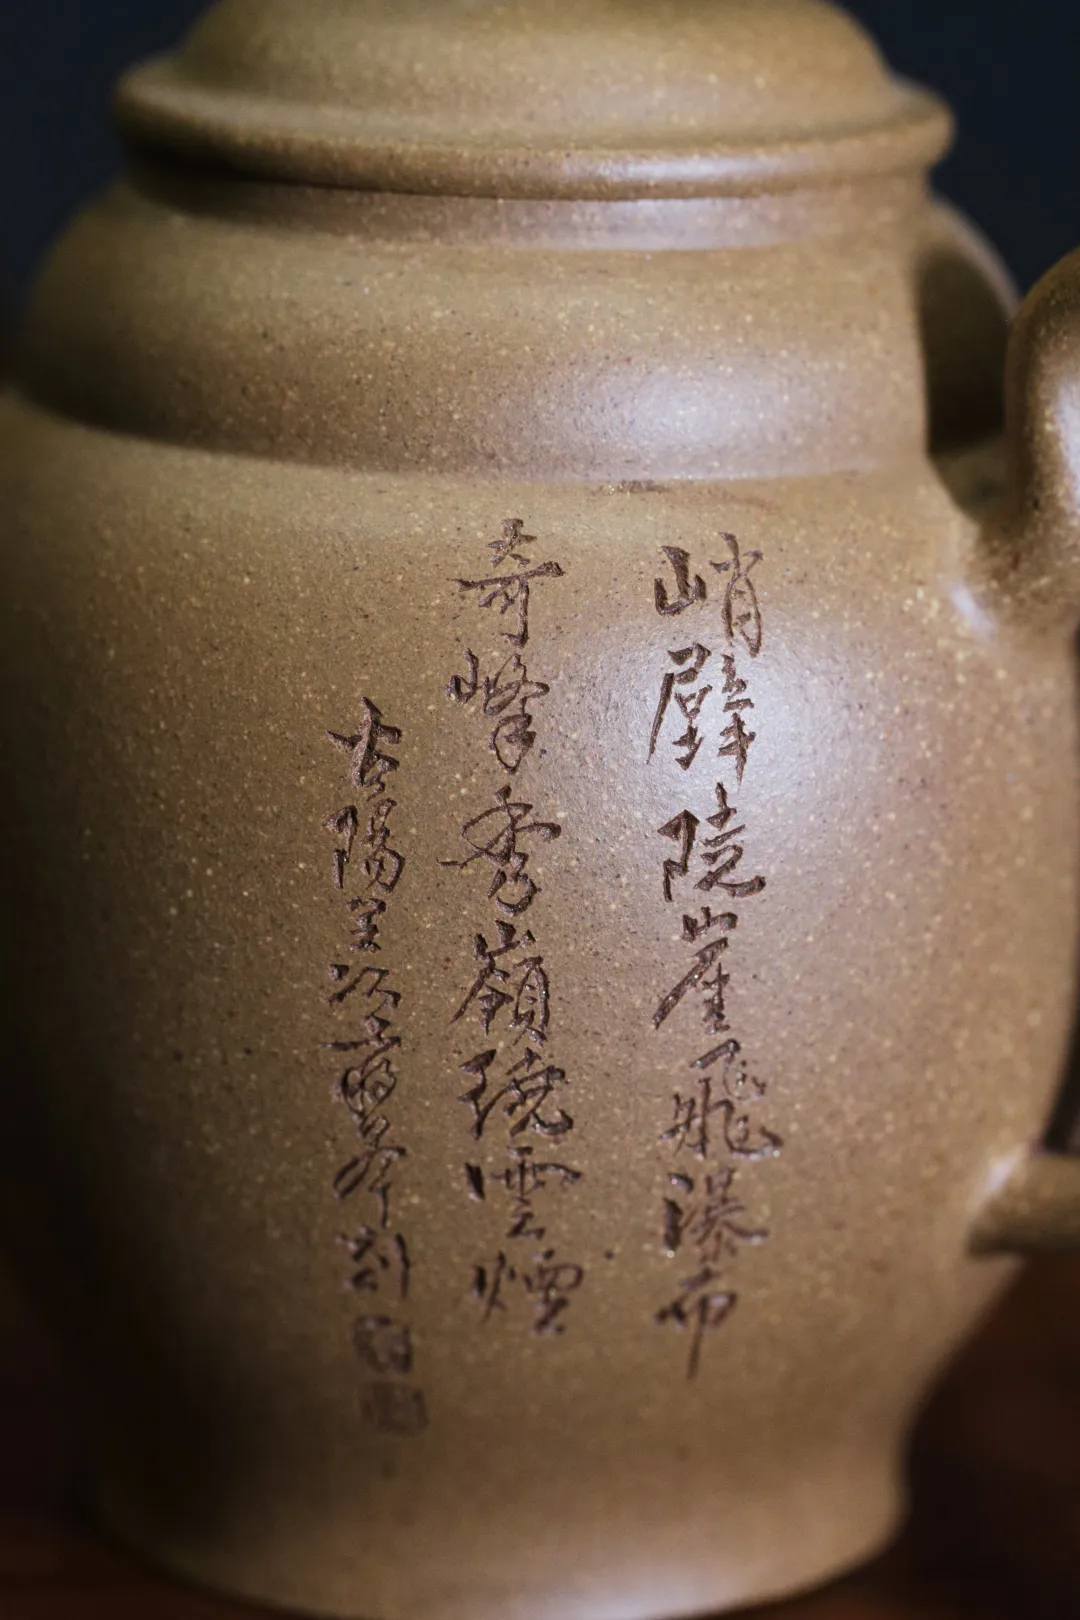 峭壁陡崖飛瀑布
奇峰秀嶺繞雲煙
古陽羡
刻